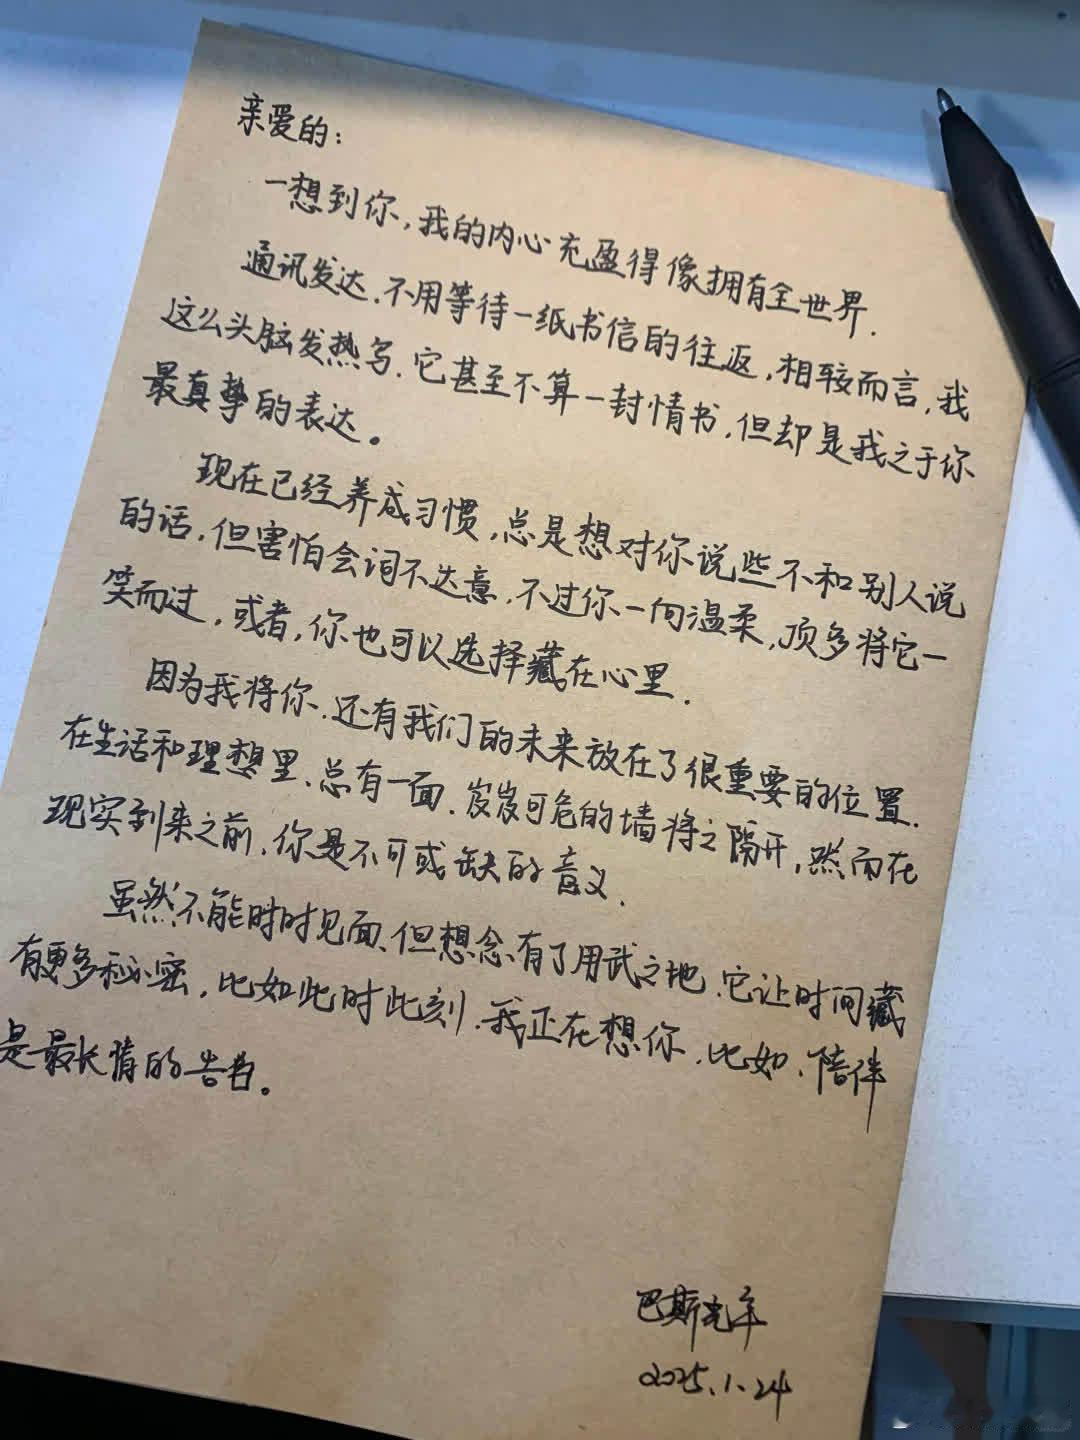 亲爱的：
一想到你，我的内心充盈得像拥有全世界．
通讯发达．不用等待一纸书信的往返，相较而言，我
这么头脑发热写．它甚至不算一封情书，但却是我之于你
最真挚的表达。
现在已经养成习惯，总是想对你说些不和别人说
的话，但害怕会词不达意．不过你一向温柔，顶多将它一
笑而过，或者，你也可以选择藏在心里．
因为我将你．还有我们的未来放在了很重要的位置．
在生活和理想里、总有一面．岌岌可危的墙将之隔开，然而在
现实到来之前．你是不可或缺的意义．
虽然不能时时见面、但想念有了用武之地．它让时间藏
有更多秘密，比如此时此刻．我正在想你．比如、陪伴
是最长情的告白。
巴斯光年
2025.1.24